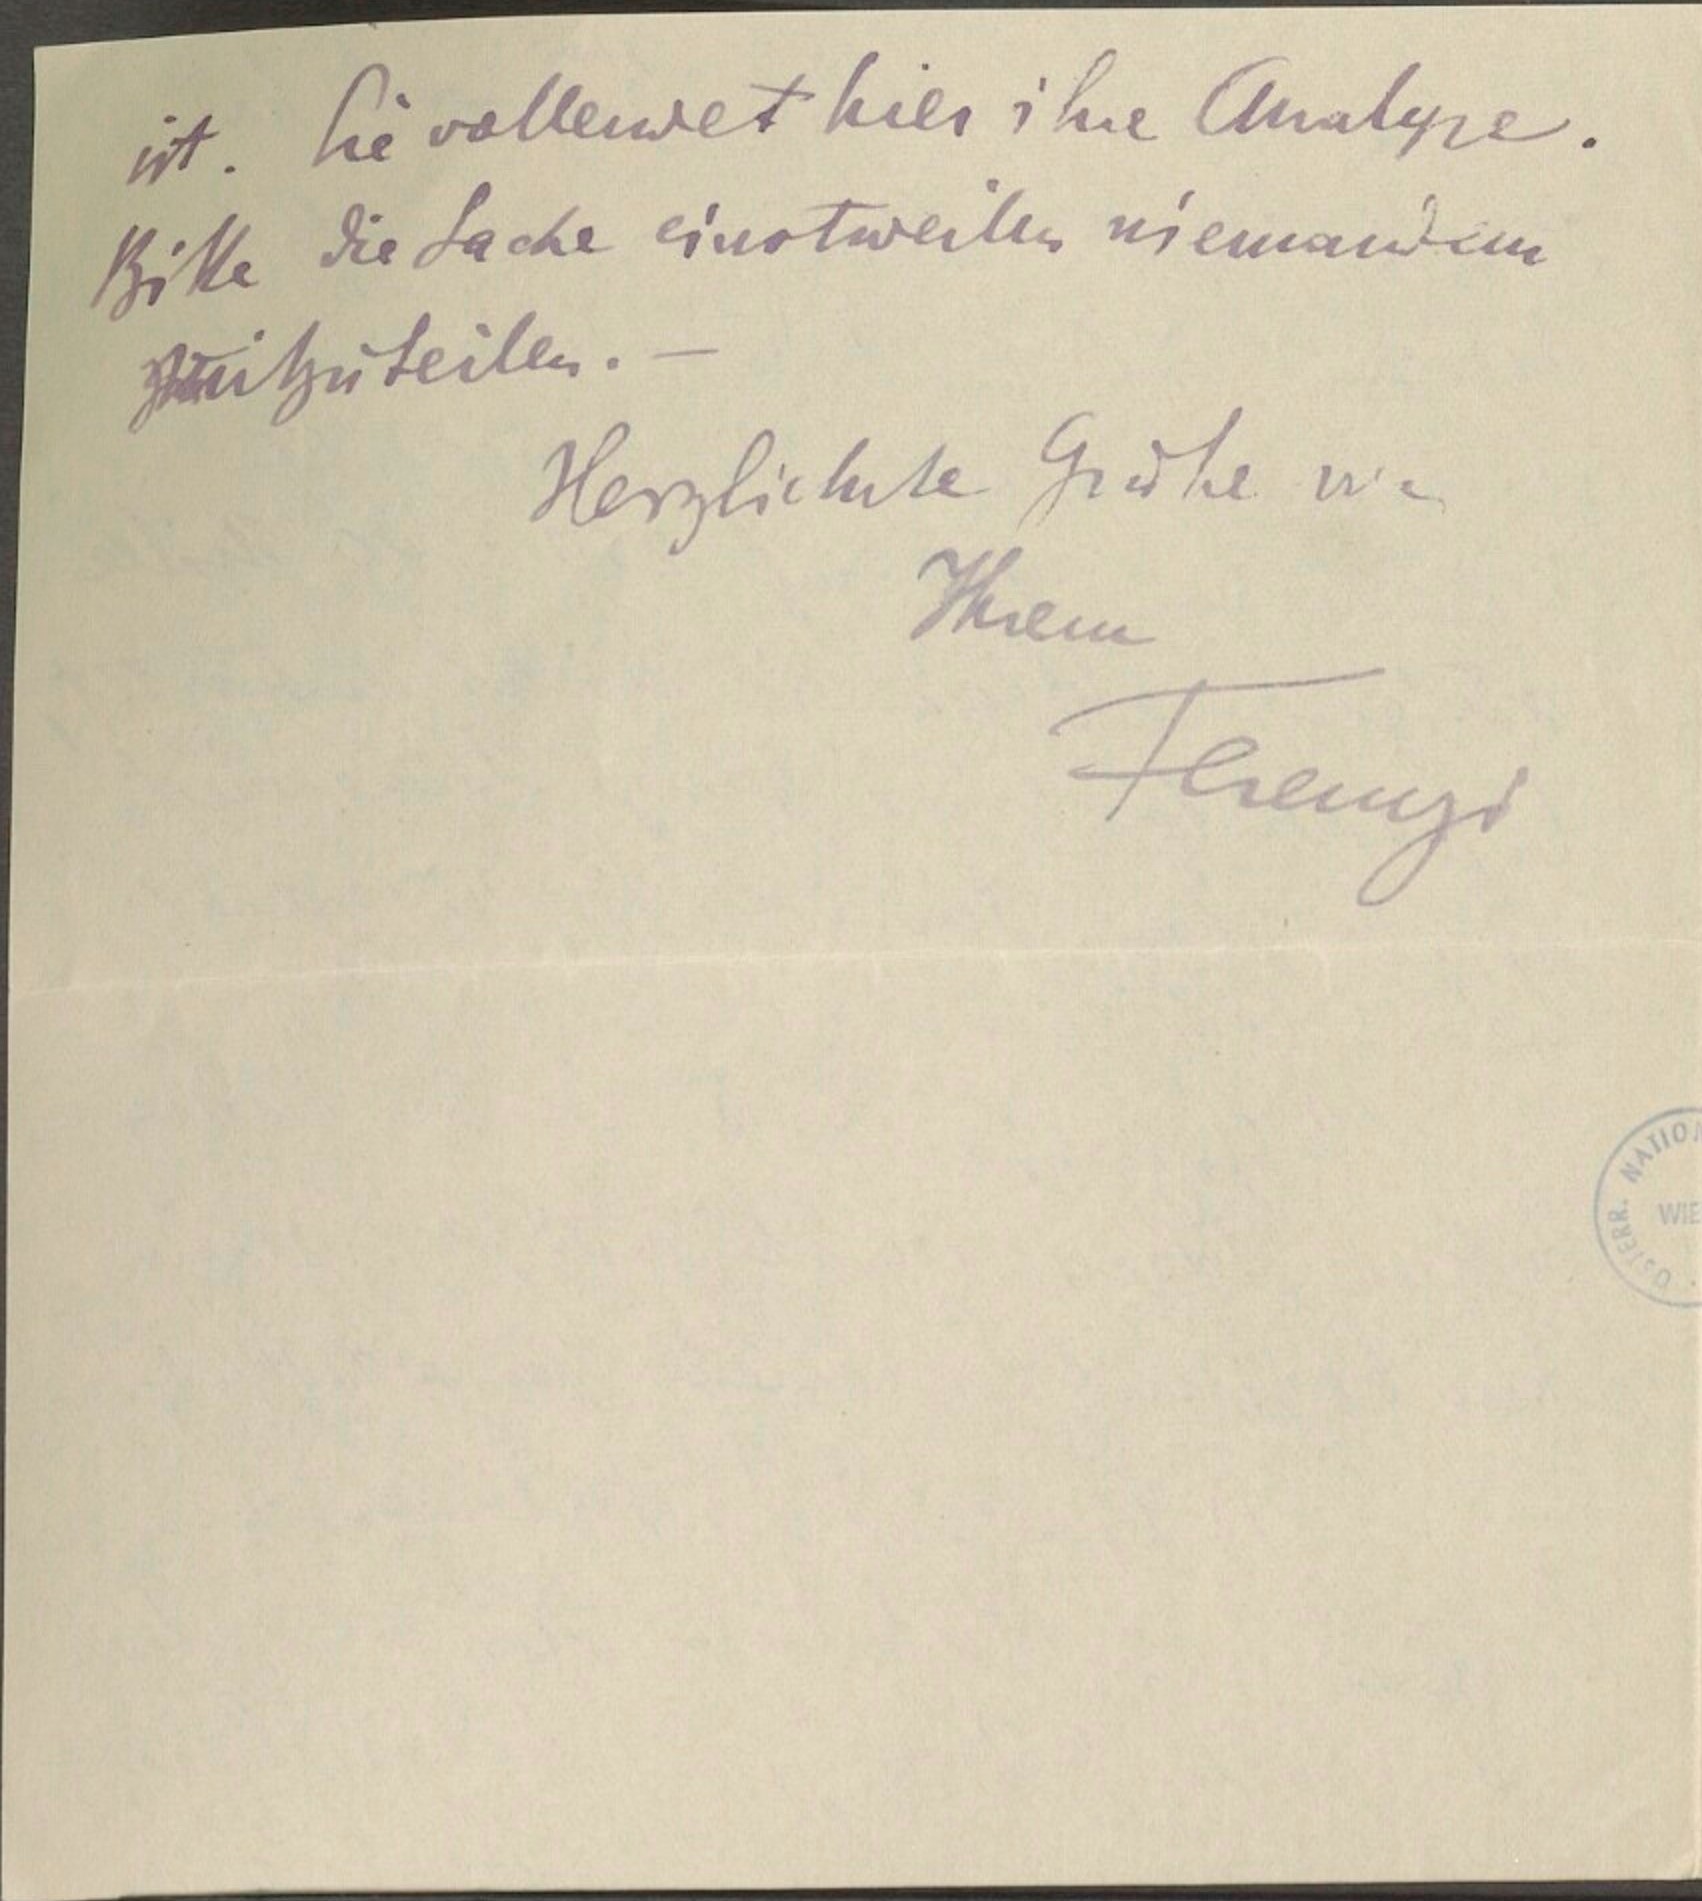 ist. Sie vollendet hier ihre Analyse.
Bitte die Sache einstweilen niemandem
mitzuteilen. —
Herzlichste Grüße von
Ihrem
Ferenczi
ÖSTERR. NATION
WIE